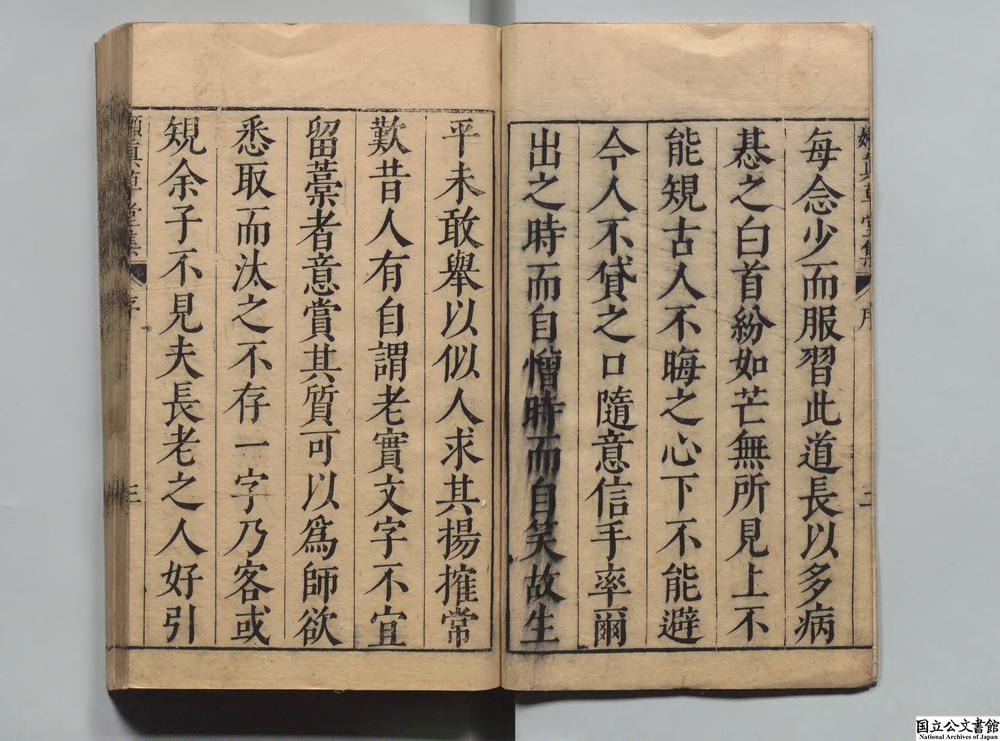 每念少而服習此道長以多病
惎之白首紛如芒無所見上不
能規古人不晦之心下不能避
今人不貸之口隨意信手率爾
出之時而自憎時而自笑故生
平未敢舉以似人求其揚搉常
歎昔人有自謂老實文字不宜
留藁者意賞其質可以為師欲
悉取而汰之不存一字乃客或
規余子不見夫長老之人好引
草堂集
序
三
国立公文書館
National Archives of Japan